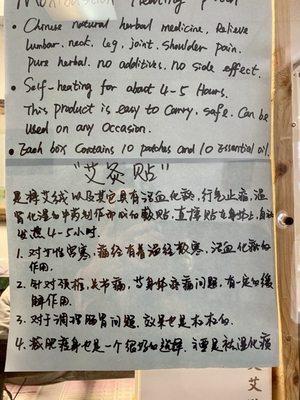 Moxibustion Heating patch
• Chinese natural herbal medicine, Relieve
lumbar, neck, leg, joint, shoulder pain.
Pure herbal, no additives, no side effect.
• Self-heating for about 4-5 Hours.
This Product is easy to Carry, safe. Can be
Used on any Occasion.
• Each box Contains 10 patches and 10 Essential oil.
"艾灸贴"
是将艾绒以及其它具有活血化瘀,行气止痛,温
4-5小时.
1. 对于性宫寒,痛经有着温经散寒,活血化瘀的
作用.
2. 针对颈椎,关节痛,等身体疼痛问题,有一定的缓
解作用.
3. 对于调理肠胃问题,效果也是杠杠的.
4. 减肥瘦身也是一个很好的选择,主要是祛湿化瘀